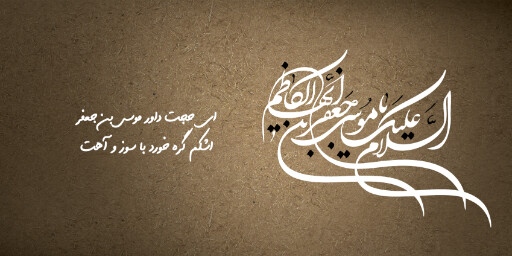 السلام علیک یا موسی بن جعفر ایها الکاظم
ای حجت داور موسی بن جعفر
اشکم گره خورد با سوز و آهت